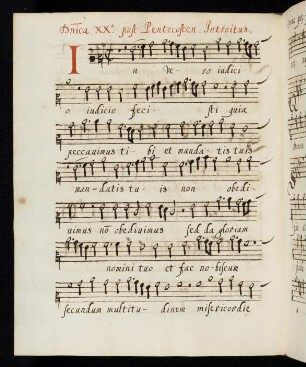 Dnica XX. post Pentecosten. Introitus.
I n ve- ro iudici
o iudicio feci- sti quia
peccavimus ti- bi et manda- tis tuis
man- datis tu- is non obedi-
uimus nō obedivimus sed da gloriam
nomini tuo et fac nobiscum
secundum multitu- dinem misericordie